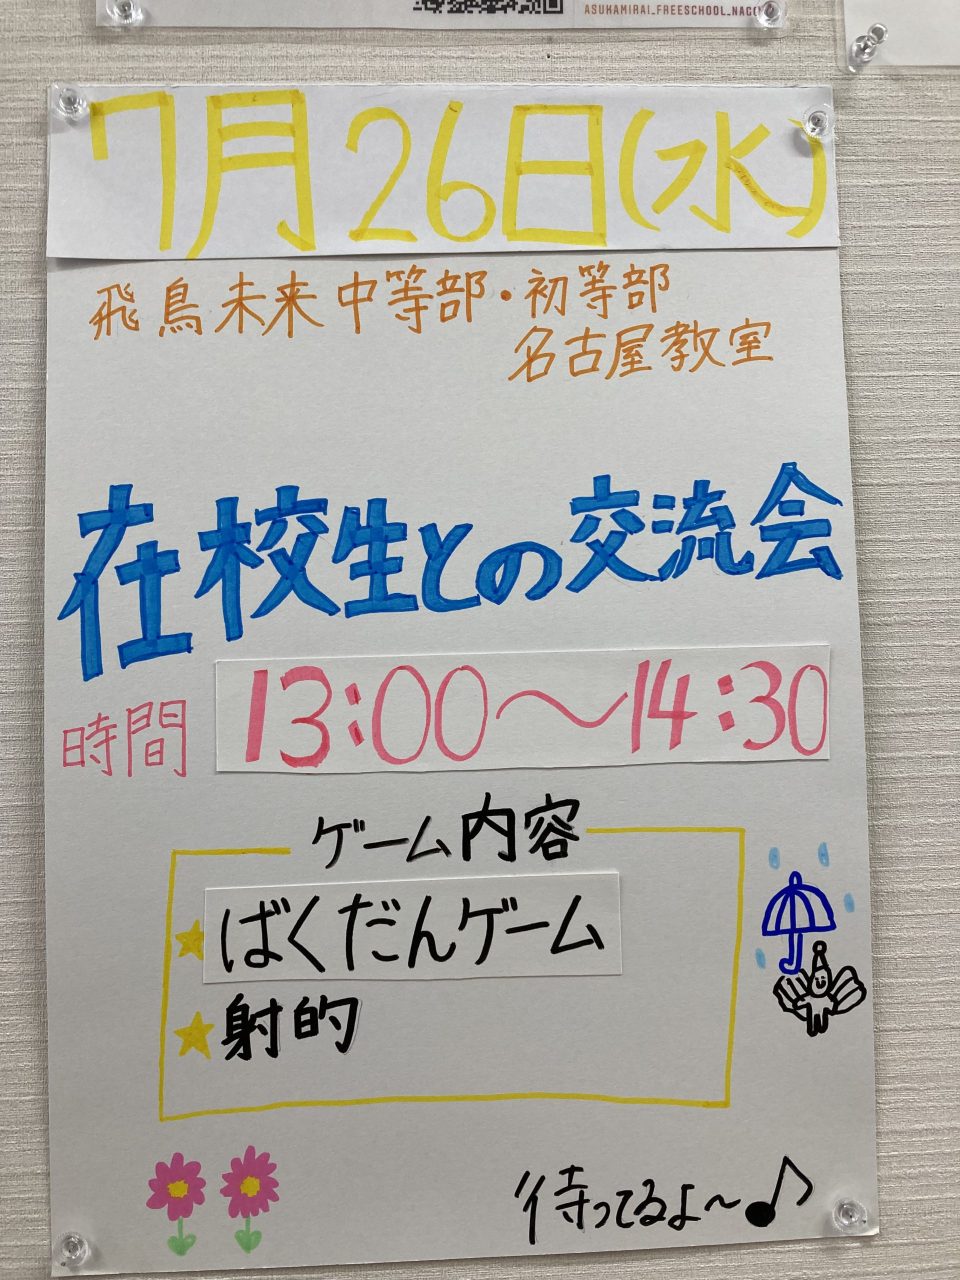 ASUKAMIRAI_FREESCHOOL_NAGO
7月26日(水)
飛鳥未来中等部・初等部
名古屋教室
在校生との交流会
時間 13:00〜14:30
ゲーム内容
★ばくだんゲーム
★射的
待ってるよ〜♪